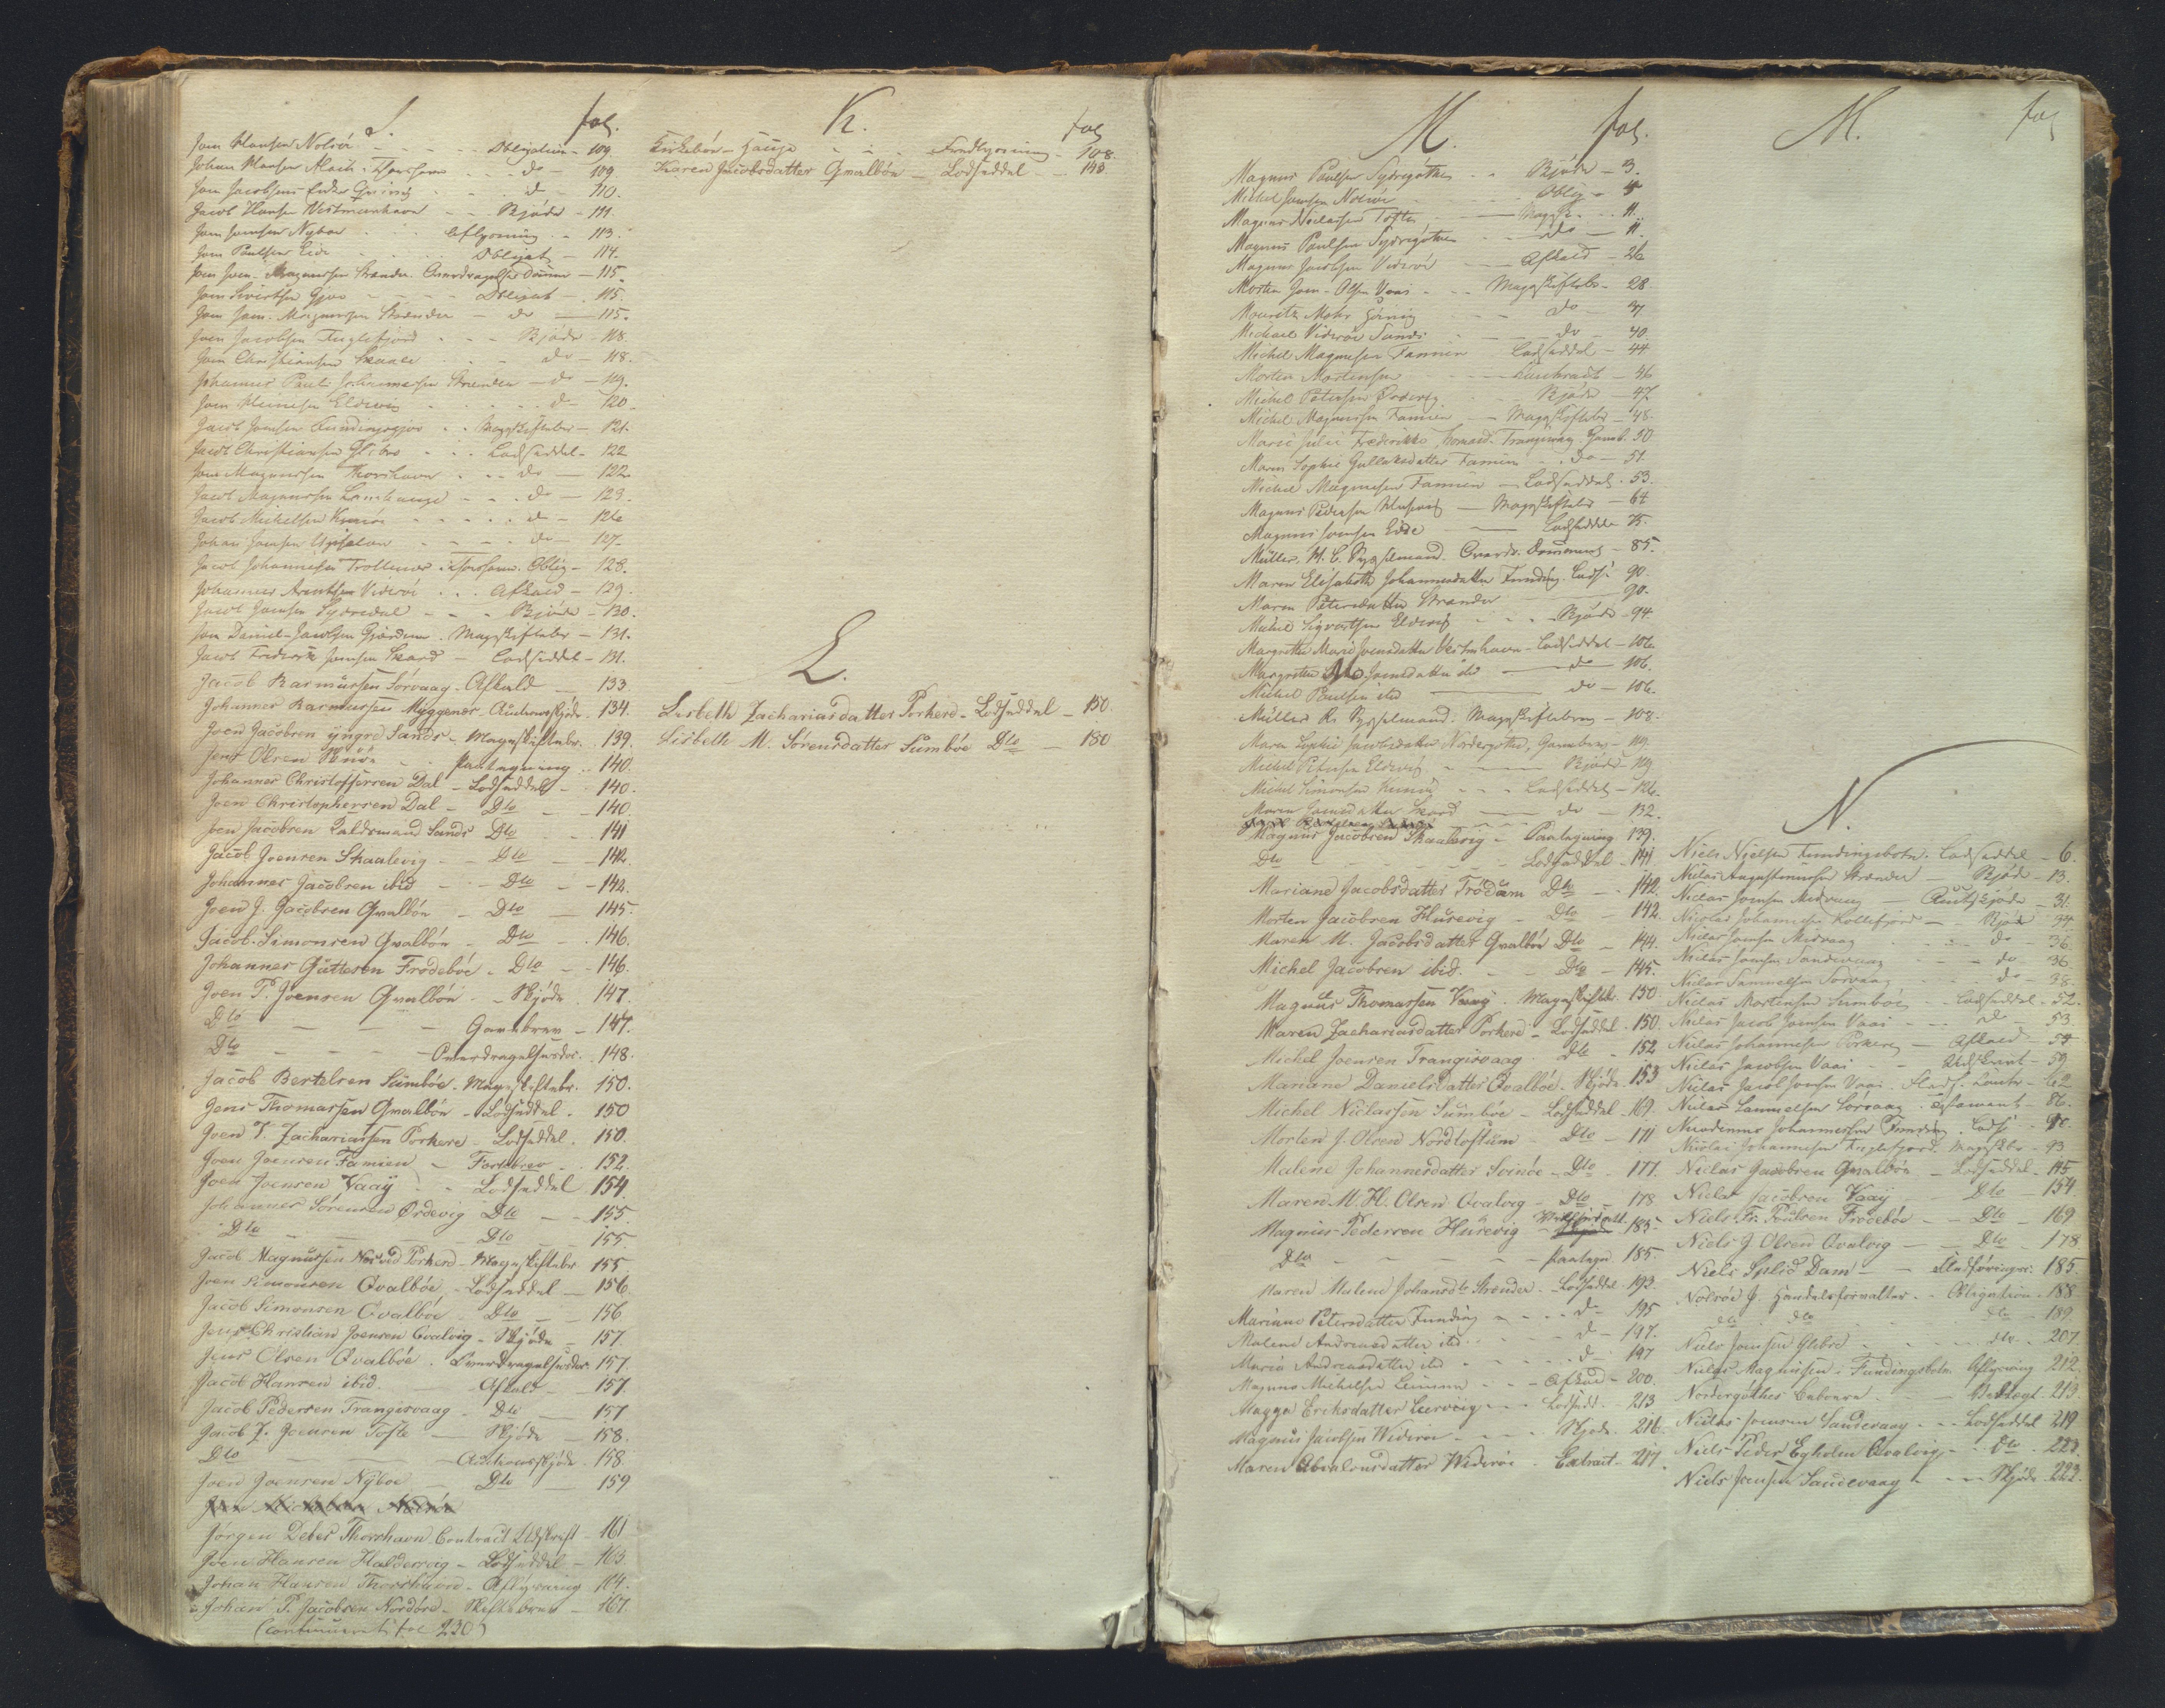 J. fol.
Joen Hansen Nolsöe - - - Obligation - 109.
Johan Hansen i Thorshavn - - do - 109.
Joen Jacobsens Enke - - d - 110.
Jacob Hansen Vestmanhavn - - Skjöde - 111.
Joen Joensen Nyboe - - Aflysning - 113.
Joen Poulsen Eide - - Obligat - 114.
Joen Joen-Magnussen Strænder. - 115.
Joen Sivertsen Gjov - - Obligat - 115.
Joen Joen-Magnussen Strænder - do - 115.
Joen Jacobsen Fuglefjord - - Skjöde - 118.
Joen Christiansen Skaale - - do - 118.
Johannes Poul Johannessen Strænder - do - 119.
Joen Heinesen Eldevig - - d - 120.
Jacob Joensen - - Mageskiftebr - 121.
Jacob Christiansen Glibre - - Lodseddel - 122
Joen Magnussen Thorshavn - - do - 122.
Jacob Magnussen Lambhauge - - do - 123.
Jacob Michelsen - - d - 126
Johan Joensen - - do - 127.
Jacob Johannesen i Thorshavn. Oblig - 128.
Johannes Arentsen Videröe - - Afkald - 129.
Jacob Joensen Sydredal - - Skjöde - 130.
Joen Daniel-Jacobsen . Mageskiftebr - 131.
Jacob Frederik Joensen Skaard - Lodseddel - 131.
Jacob Rasmussen Sörvaag - Afkald - 133
Johannes Rasmussen Myggenæs - Auctionsskjöde . 134.
Joen Jacobsen yngre Sands - Mageskiftebr. 139.
Jens Olsen Skuöe - - Paategning - 140.
Johannes Christoffersen Dal - Lodseddel - 140.
Joen Christophersen Dal - Dto - 140.
Joen Jacobsen Sands Dto - 141
Jacob Joensen Skaalevig - - Dto - 142.
Johannes Jacobsen ibid - - Dto - 142.
Joen J. Jacobsen Qvalböe - Dto - 145.
Jacob Simonsen Qvalböe - Dto - 146.
Johannes Guttesen Frodeböe - Dto - 146.
Joen P. Joensen Qvalböe - Skjöde . 147.
Dto - - - Gavebrev - 147.
Dto - - - Overdragelsesdoc. 148.
Jacob Bertelsen Sumböe - Mageskiftebr. 150.
Jens Thomassen Qvalböe - Lodseddel . 150
Joen T. Zachariassen Porkere - Lodseddel . 150.
Joen Joensen Famien - Festebrev - 152.
Joen Joensen Vaaÿ - Lodseddel 154.
Johannes Sörensen Ördevig Dto - 155.
Dto - - Dto - 155.
Jacob Magnussen Porkere - Mageskiftebr 155.
Joen Simonsen Qvalböe - Lodseddel - 156.
Jacob Simonsen Qvalböe - Dto - 156
Jens Christian Joensen Qvalvig - Skjöde - 157
Jens Olsen Qvalböe . Overdragelsesdoc. 157.
Jacob Hansen ibid. - Afkald - 157.
Jacob Pedersen Trangisvaag - Dto - 157
Jacob J. Joensen Tofte - Skjöde - 158.
Dto - - - Auctionsskjöde . 158.
Joen Joensen Nÿboe - Dto - 159
Jörgen Debes Thorshavn Contract Udskrift - 161
Joen Hansen Haldersvig - Lodseddel - 163.
Johan Hansen Thorshavn - Aflysning 164.
Johan P. Jacobsen Nordöre - Skiftebrev - 167.
(Continueret fol 230)
K. fol
Kirkebøe-Hauge - - Fredlysning - 108.
Karen Jacobsdatter Qvalböe - Lodseddel - 145
L.
Lisbeth Zachariasdatter Porkere - Lodseddel - 150.
Lisbeth M. Sörensdatter Sumböe Dto - 180
M. fol.
Magnus Poulsen Sydregöthe - - Skjöde - 3.
Michel Joensen Nolsöe - Oblig - 5
Magnus Niclassen Tofte - Magesk. - 11.
Magnus Poulsen Sydregöthe - - do - 11.
Magnus Jacobsen Videröe - Afkald - 26
Morten Joen-Olsen Vaai - - Mageskiftebr - 28.
Mouritz Mohr - - do - 37
Michael Videröe Sands - - do - 40.
Michel Magnussen Famien - Lodseddel - 44
Morten Mortensen - - 46
Michel Petersen Ördevig - Skjöde - 47.
Michel Magnussen Famien - Mageskiftebr - 48.
Marie Julie Frederikke Trangisvaag. Gaveb. 50.
Maren Sophie Famien - do - 51.
Michel Magnussen Famien - Lodseddel . 53.
Magnus Pedersen Husevig - Mageskiftebr - 64
Magnus Joensen Eide - Lodseddel 75.
Müller, H. C. Sysselmand. Overdr. Document - 85.
Maren Elisabeth Johannesdatter Funding. Lods. 90.
Maren Petersdatter Strænder - 90.
Michel Sigvartsen Eldevig - - Skjöde - 94.
Margrethe Marie Joensdatter Vestmhavn - Lodseddel - 106
Margrethe Joensdatter ibd - do - 106.
Michel Poulsen ibd - do - 106.
Müller Sysselmand. Mageskiftebrev - 108.
Maren Sophie Jacobsdatter Nordregöthe, Gavebrev - 119.
Michel Petersen Eldevig - - Skjöde - 119
Michel Simonsen - - Lodseddel - 126.
Maren Joensdatter Skaard - do - 132.
Magnus Jacobsen Skaalevig - Paategning 139.
Dto - - - Lodseddel - 141
Mariane Jacobsdatter Trödum Dto - 142.
Morten Jacobsen Husevig - Dto - 142.
Maren M. Jacobsdatter Qvalböe Dto - 144.
Michel Jacobsen ibid. - - Dto - 145.
Magnus Thomassen Vaaÿ . Mageskiftebr. 150
Maren Zachariasdatter Porkere - Lodseddel . 150.
Michel Joensen Trangisvaag . Dto - 152
Mariane Danielsdatter Qvalböe. Skjöde . 153
Michel Niclassen Sumböe - Lodseddel . 169.
Morten J. Olsen Nordtoftum - Dto - 171
Malene Johannesdatter Svinöe - Dto - 177.
Maren M. H. Olsen Qvalvig - Dto - 178
Magnus Pedersen Husevig - 185.
Dto - - - Paategn . 185.
Maren Malene Johansdr Strænder - Lodseddel . 193.
Mariane Petersdatter Funding - - d - 195
Malene Andreasdatter ibd. - - d - 197.
Maria Andreasdatter ibd - - d - 197
Magnus Michelsen - - Afkald - 200.
Magga Eriksdatter Leervig - - Lodsedd. - 213
Magnus Jacobsen Wideröe - - Skjöde. 216.
Maren Absalonsdatter Wideröe - Extract - 217.
M. fol
N.
Niels Nielsen Fundingsbotn. Lodseddel - 6.
Niclas Augustinussen Strænder - Skjöde - 13.
Niclas Joensen Midvaag - Auctskjöde - 31.
Nicolai Johannesen Kollefjord - Skjöde 34.
Niclas Joensen Midvaag - - do - 36.
Niclas Joensen Sandevaag - - do 36
Niclas Samuelsen Sörvaag - - do - 38.
Niclas Mortensen Sumböe - Lodseddel - 52.
Niclas Jacob Joensen Vaai - - do - 53.
Niclas Johannesen Porkere - Afkald - 54
Niclas Jacobsen Vaai - - Udskrivt - 59.
Niclas Jacob Joensen Vaai - 62
Niclas Samuelsen Sörvaag . Testament - 86.
Johannessen Funding. Lods. - 90.
Nicolai Johannesen Fuglefjord. Mageskbr - 93.
Niclas Jacobsen Qvalböe - Lodseddel . 145
Niels Jacobsen Vaaÿ - Dto 154.
Niels Fr. Poulsen Frodeböe - - Dto - 169
Niels J. Olsen Qvalvig - - Dto - 178
Niels Splid Dam - - Udförings. 185
Nolsöe J. Handelsforvalter - Obligation . 188
do do - dto - 189.
Niels Joensen Glibre - - dto - 207
Niclas Magnussen i Fundingsbotn Aflysning 212
Nordregöthes Beboere - - Vedtægt . 213.
Niclas Joensen Sandevaag - - Lodseddel 219
Niels Peder Egholm Qvalvig - Dto - 222
Niels Joensen Sandevaag - - Skjöde 222.